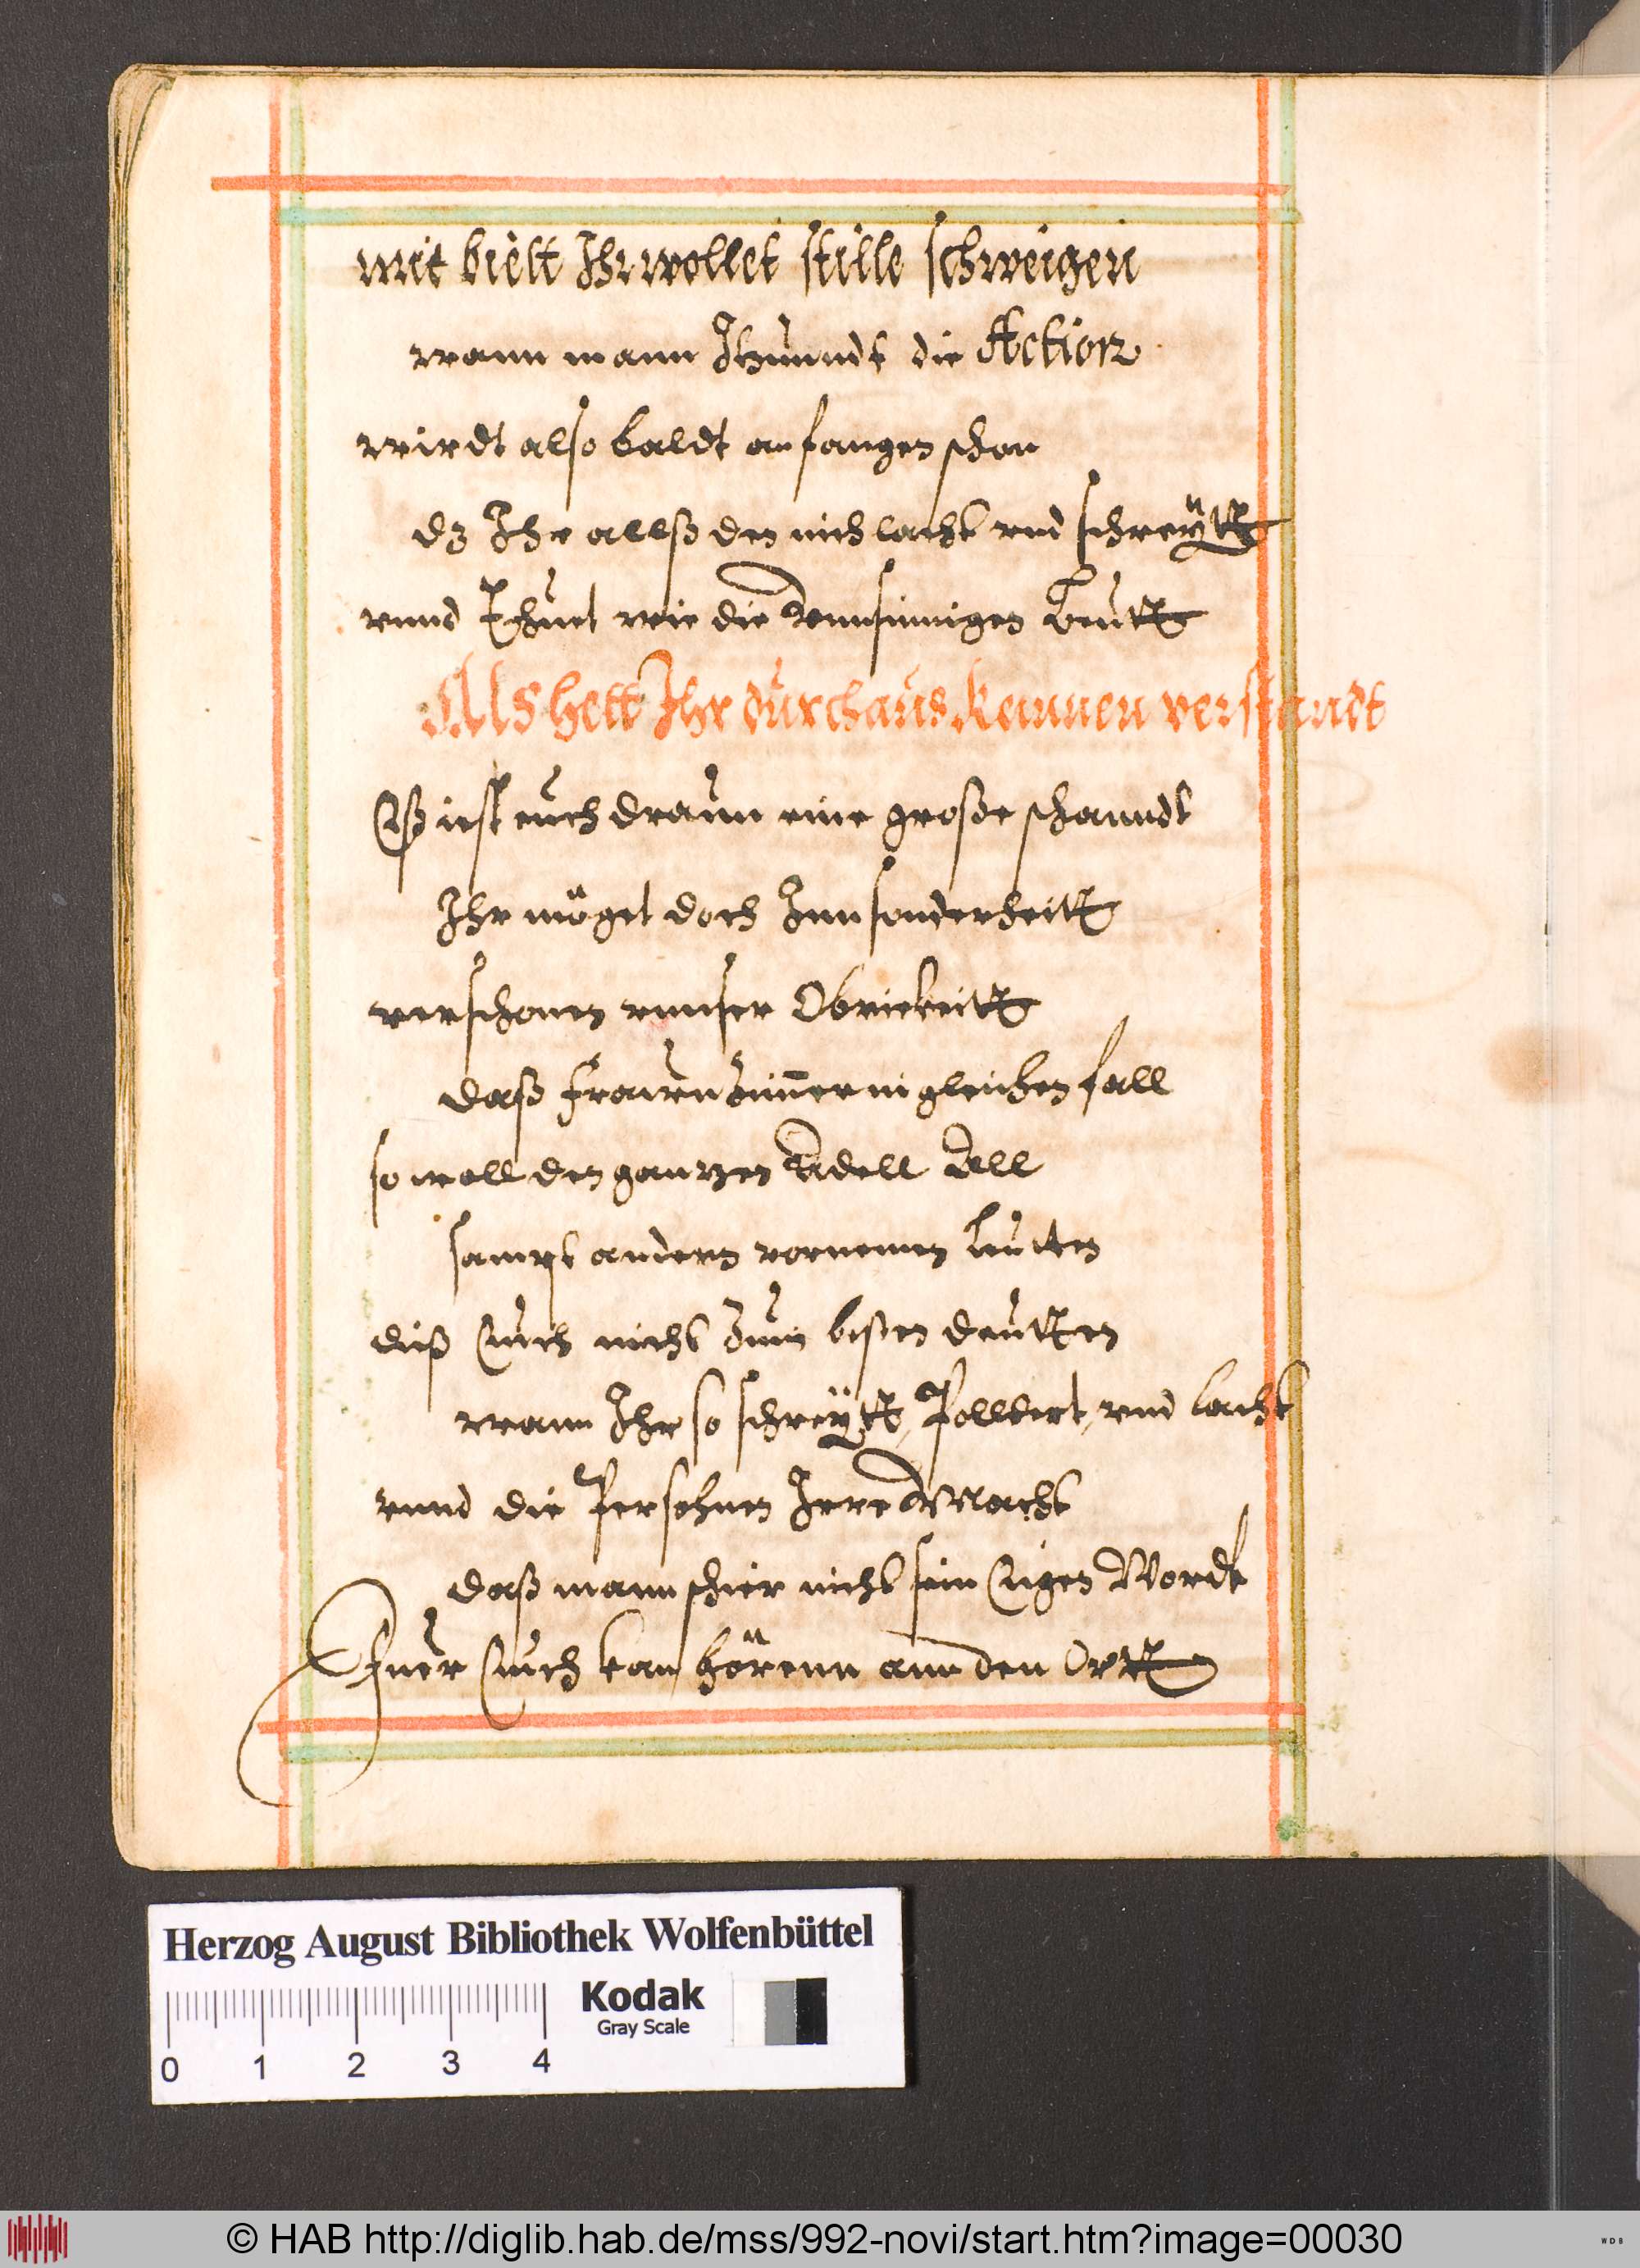 mit bitt Ihr wollet stille schweigen
wann mann Itzunndt die Action
wirdt also baldt anfangen schon
dz Ihr allß den nich lacht vnd schreÿtt
vnnd Thuet wie die Vnnsinnigen Leutt
Als hett Ihr durchaus keinnen verstandt
Eß ist euch draun eine große schanndt
Ihr möget doch Innsonderheitt
verschonen vnnser Obrickeitt
daß Frauenzimmer in gleichen fall
so woll den gantzen Adell All
sampt andern vornemen leutten
diß Euch nicht zum besten deutten
wann Ihr so schreÿtt, Polldert, vnd lacht
vnnd die Persohnen Irre Macht
daß mann schier nicht sein Eigen Wordt
Fuer Euch kan hörenn ann den Ortt
Herzog August Bibliothek Wolfenbüttel
Kodak
Gray Scale
0 1 2 3 4
© HAB http://diglib.hab.de/mss/992-novi/start.htm?image=00030
WDB